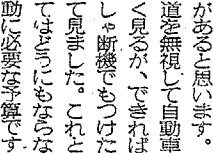 があると思います。
道を無視して自動車
く見るが、できれば
しゃ断機でもつけた
て見ました。これと
てはどうにもならな
動に必要な予算です